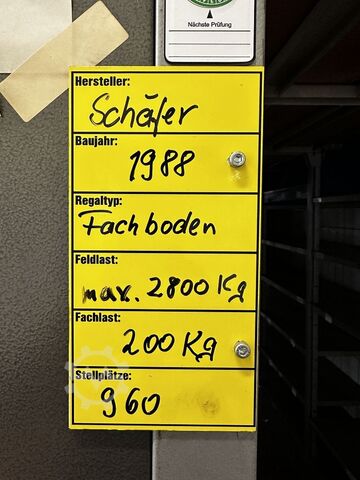 Nächste Prüfung
Hersteller:
Schäfer
Baujahr:
1988
Regaltyp:
Fachboden
Feldlast:
max. 2800 Kg
Fachlast:
200 Kg
Stellplätze:
960